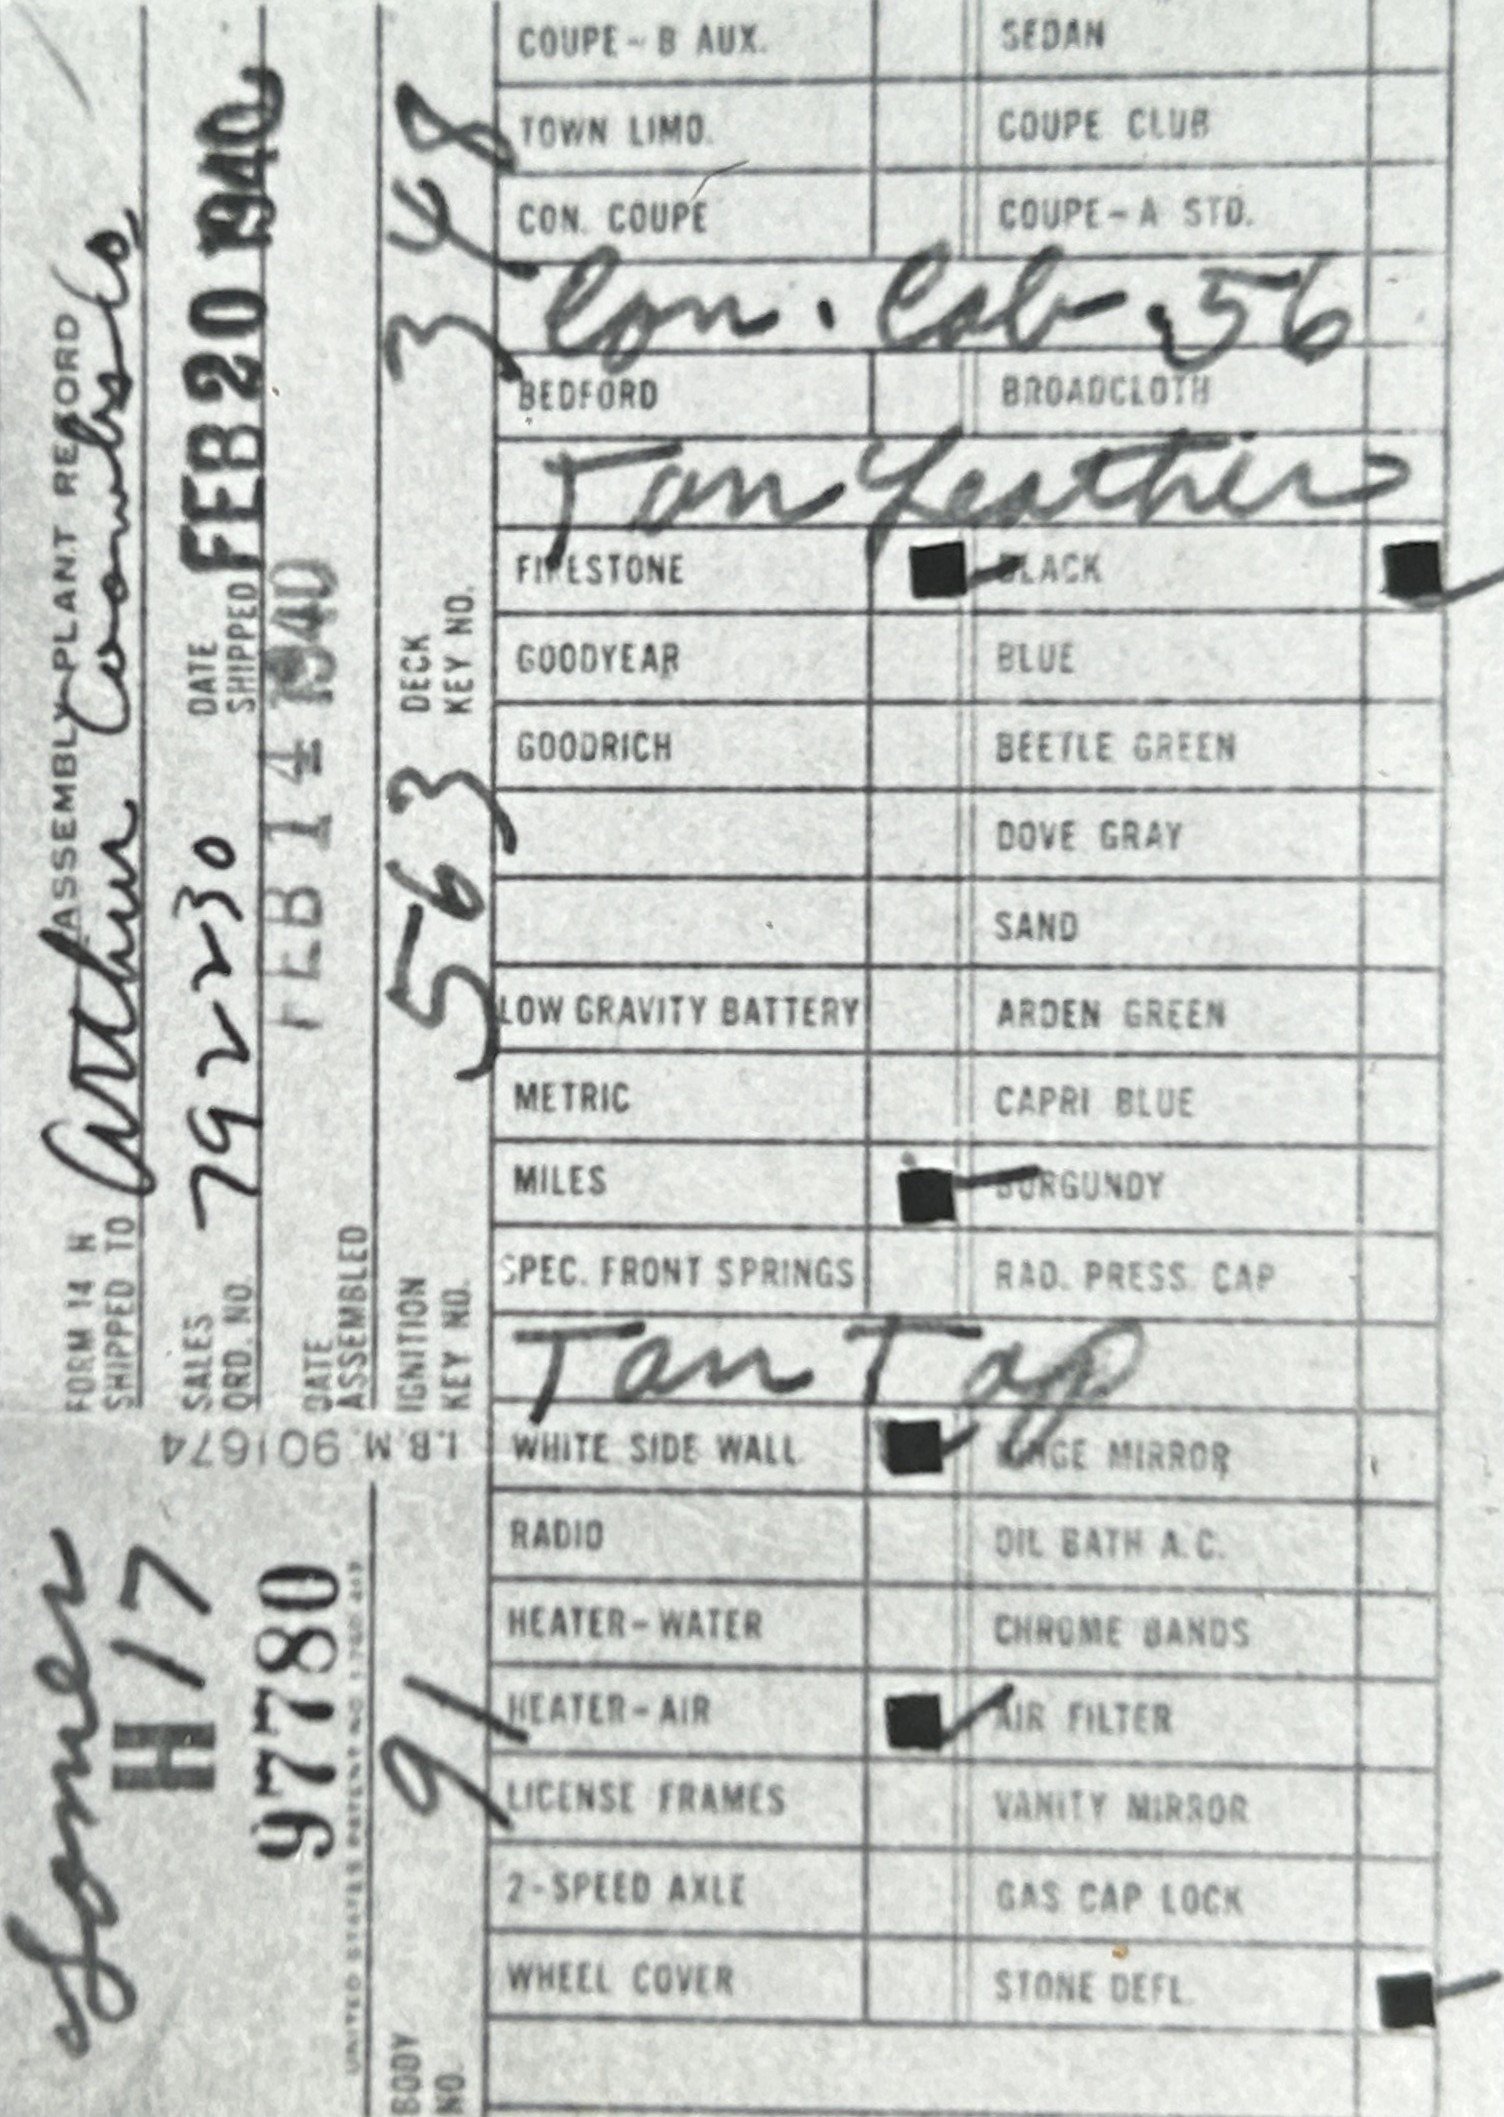 FORM 14 H ASSEMBLY PLANT RECORD
SHIPPED TO Arthur Coombs Co
SALES ORD. NO. 79230 DATE SHIPPED FEB 20 1940
DATE ASSEMBLED FEB 14 1940
IGNITION KEY NO. 563 DECK KEY NO. 348
I.B.M. 901674
H 17
97780
UNITED STATES PATENT NO.
BODY NO. 91
COUPE-B AUX. SEDAN
TOWN LIMO. COUPE CLUB
CON. COUPE COUPE-A STD.
Con. Cab. 56
BEDFORD BROADCLOTH
Tan Leather
FIRESTONE BLACK
GOODYEAR BLUE
GOODRICH BEETLE GREEN
DOVE GRAY
SAND
LOW GRAVITY BATTERY ARDEN GREEN
METRIC CAPRI BLUE
MILES BURGUNDY
SPEC. FRONT SPRINGS RAD. PRESS. CAP
Tan Top
WHITE SIDE WALL HINGE MIRROR
RADIO OIL BATH A.C.
HEATER-WATER CHROME BANDS
HEATER-AIR AIR FILTER
LICENSE FRAMES VANITY MIRROR
2-SPEED AXLE GAS CAP LOCK
WHEEL COVER STONE DEFL.